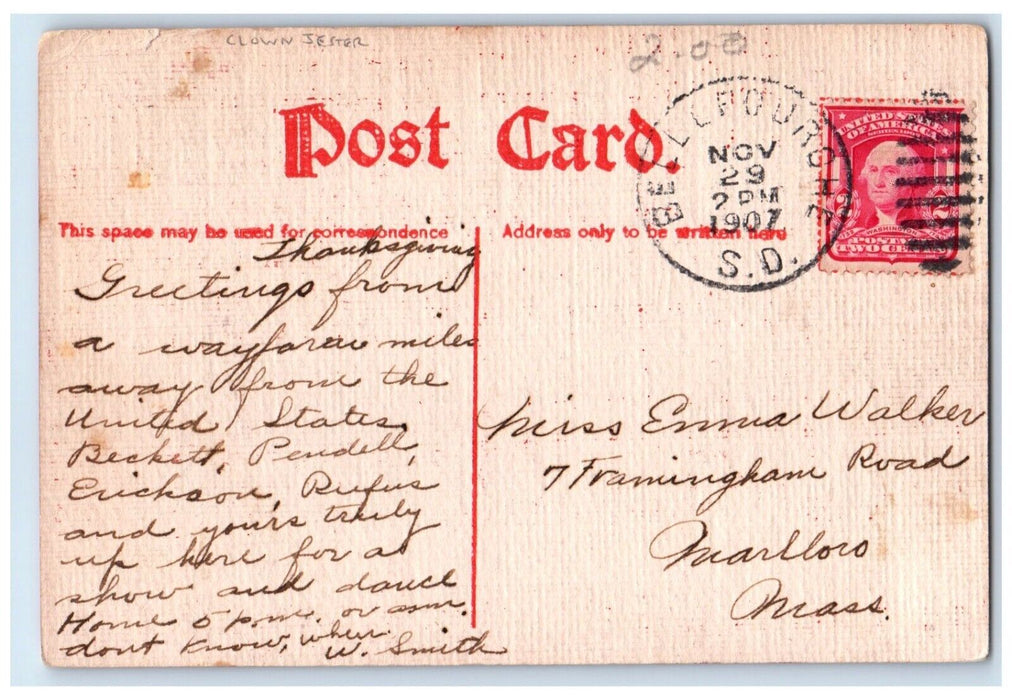 CLOWN JESTER
2.00
Post Card.
BELLEFOURCHE
NOV
29
2 PM
1907
S.D.
UNITED STATES
OF AMERICA
WASHINGTON
POSTAGE
TWO CENTS
This space may be used for correspondence
Address only to be written here
Thanksgiving
Greetings from
a wayfarer miles
away from the
United States.
Beckett, Pendell,
Erickson, Rufus
and yours truly
up here for a
show and dance
Home 5 p.m. or am.
dont know, when.
W. Smith
Miss Emma Walker
7 Framingham Road
Marlboro
Mass.